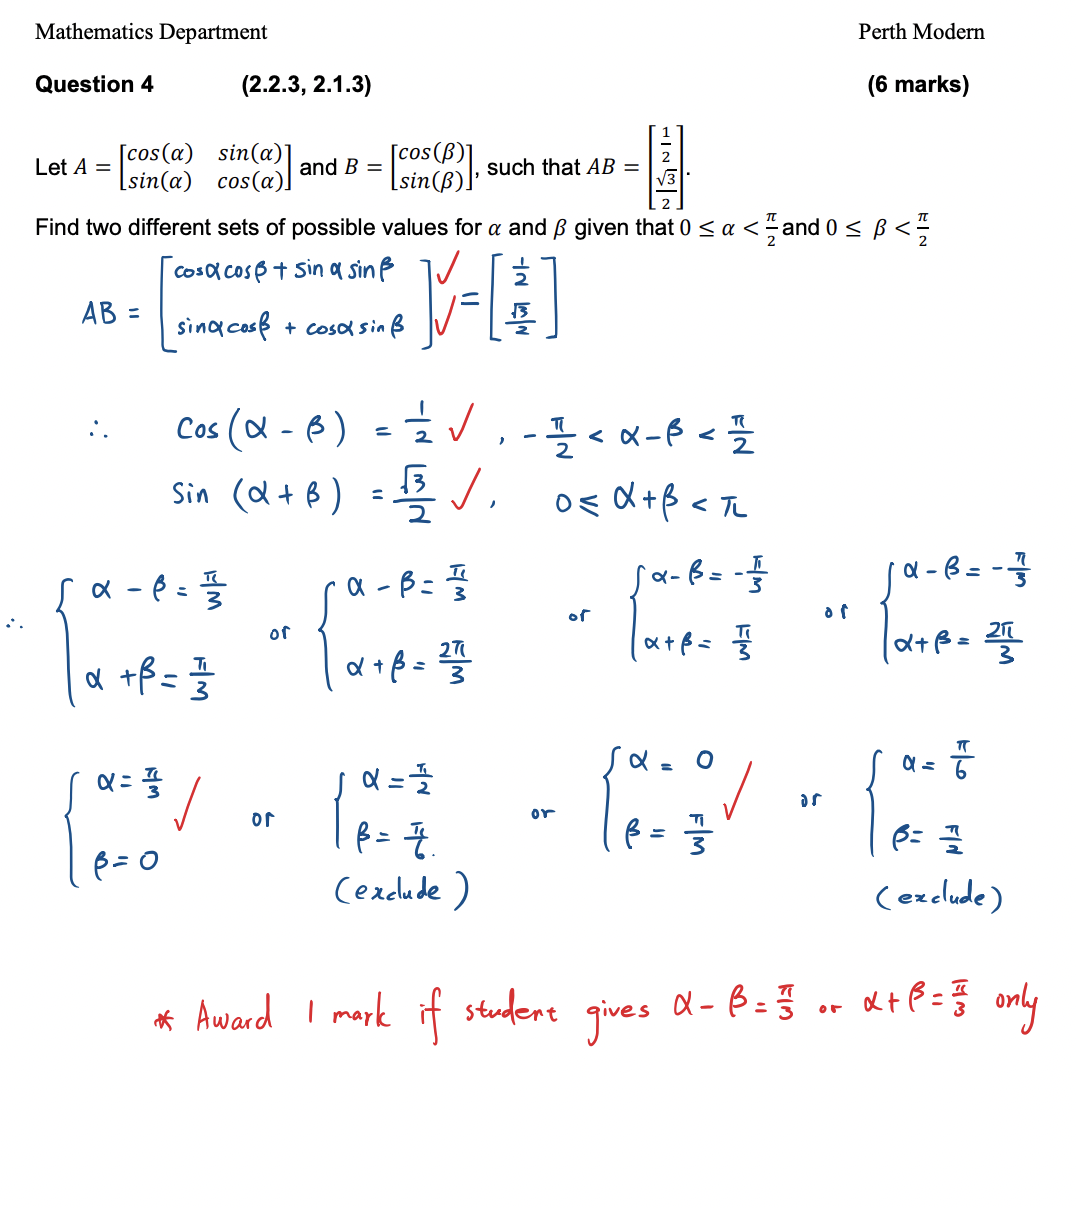 Mathematics Department Perth Modern
Question 4 (2.2.3, 2.1.3) (6 marks)
Let A = [cos(α) sin(α); sin(α) cos(α)] and B = [cos(β); sin(β)], such that AB = [1/2; √3/2].
Find two different sets of possible values for α and β given that 0 ≤ α < π/2 and 0 ≤ β < π/2
AB = [cosα cosβ + sin α sin β; sinα cosβ + cosα sin β] ✓ ✓ = [1/2; √3/2]
∴ Cos (α - β) = 1/2 ✓, -π/2 < α-β < π/2
Sin (α + β) = √3/2 ✓, 0 ≤ α+β < π
∴ { α - β = π/3 or { α - β = π/3 or { α - β = -π/3 or { α - β = -π/3
α + β = π/3 α + β = 2π/3 α + β = π/3 α + β = 2π/3
{ α = π/3 ✓ or { α = π/2 or { α = 0 ✓ or { α = π/6
β = 0 β = π/6. β = π/3 β = π/2
(exclude) (exclude)
* Award 1 mark if student gives α - β = π/3 or α + β = π/3 only